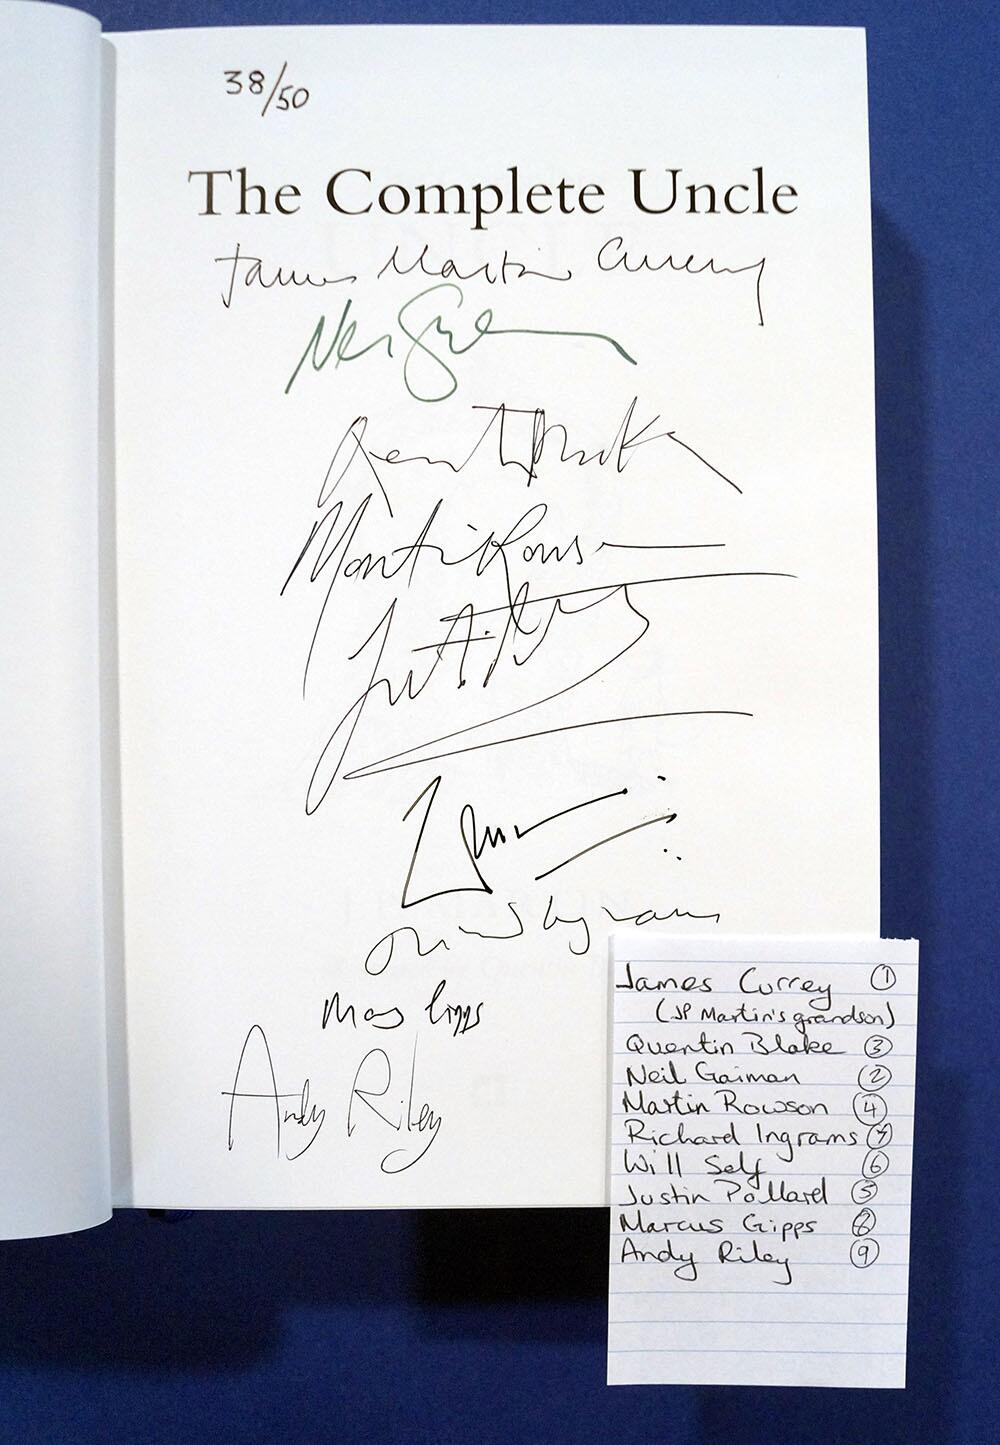 38/50
The Complete Uncle
James Martin Currey
Neil Gaiman
Quentin Blake
Martin Rowson
Richard Ingrams
Marcus Gipps
Andy Riley
James Currey ①
(JP Martin's grandson)
Quentin Blake ③
Neil Gaiman ②
Martin Rowson ④
Richard Ingrams ⑦
Will Self ⑥
Justin Pollard ⑤
Marcus Gipps ⑧
Andy Riley ⑨